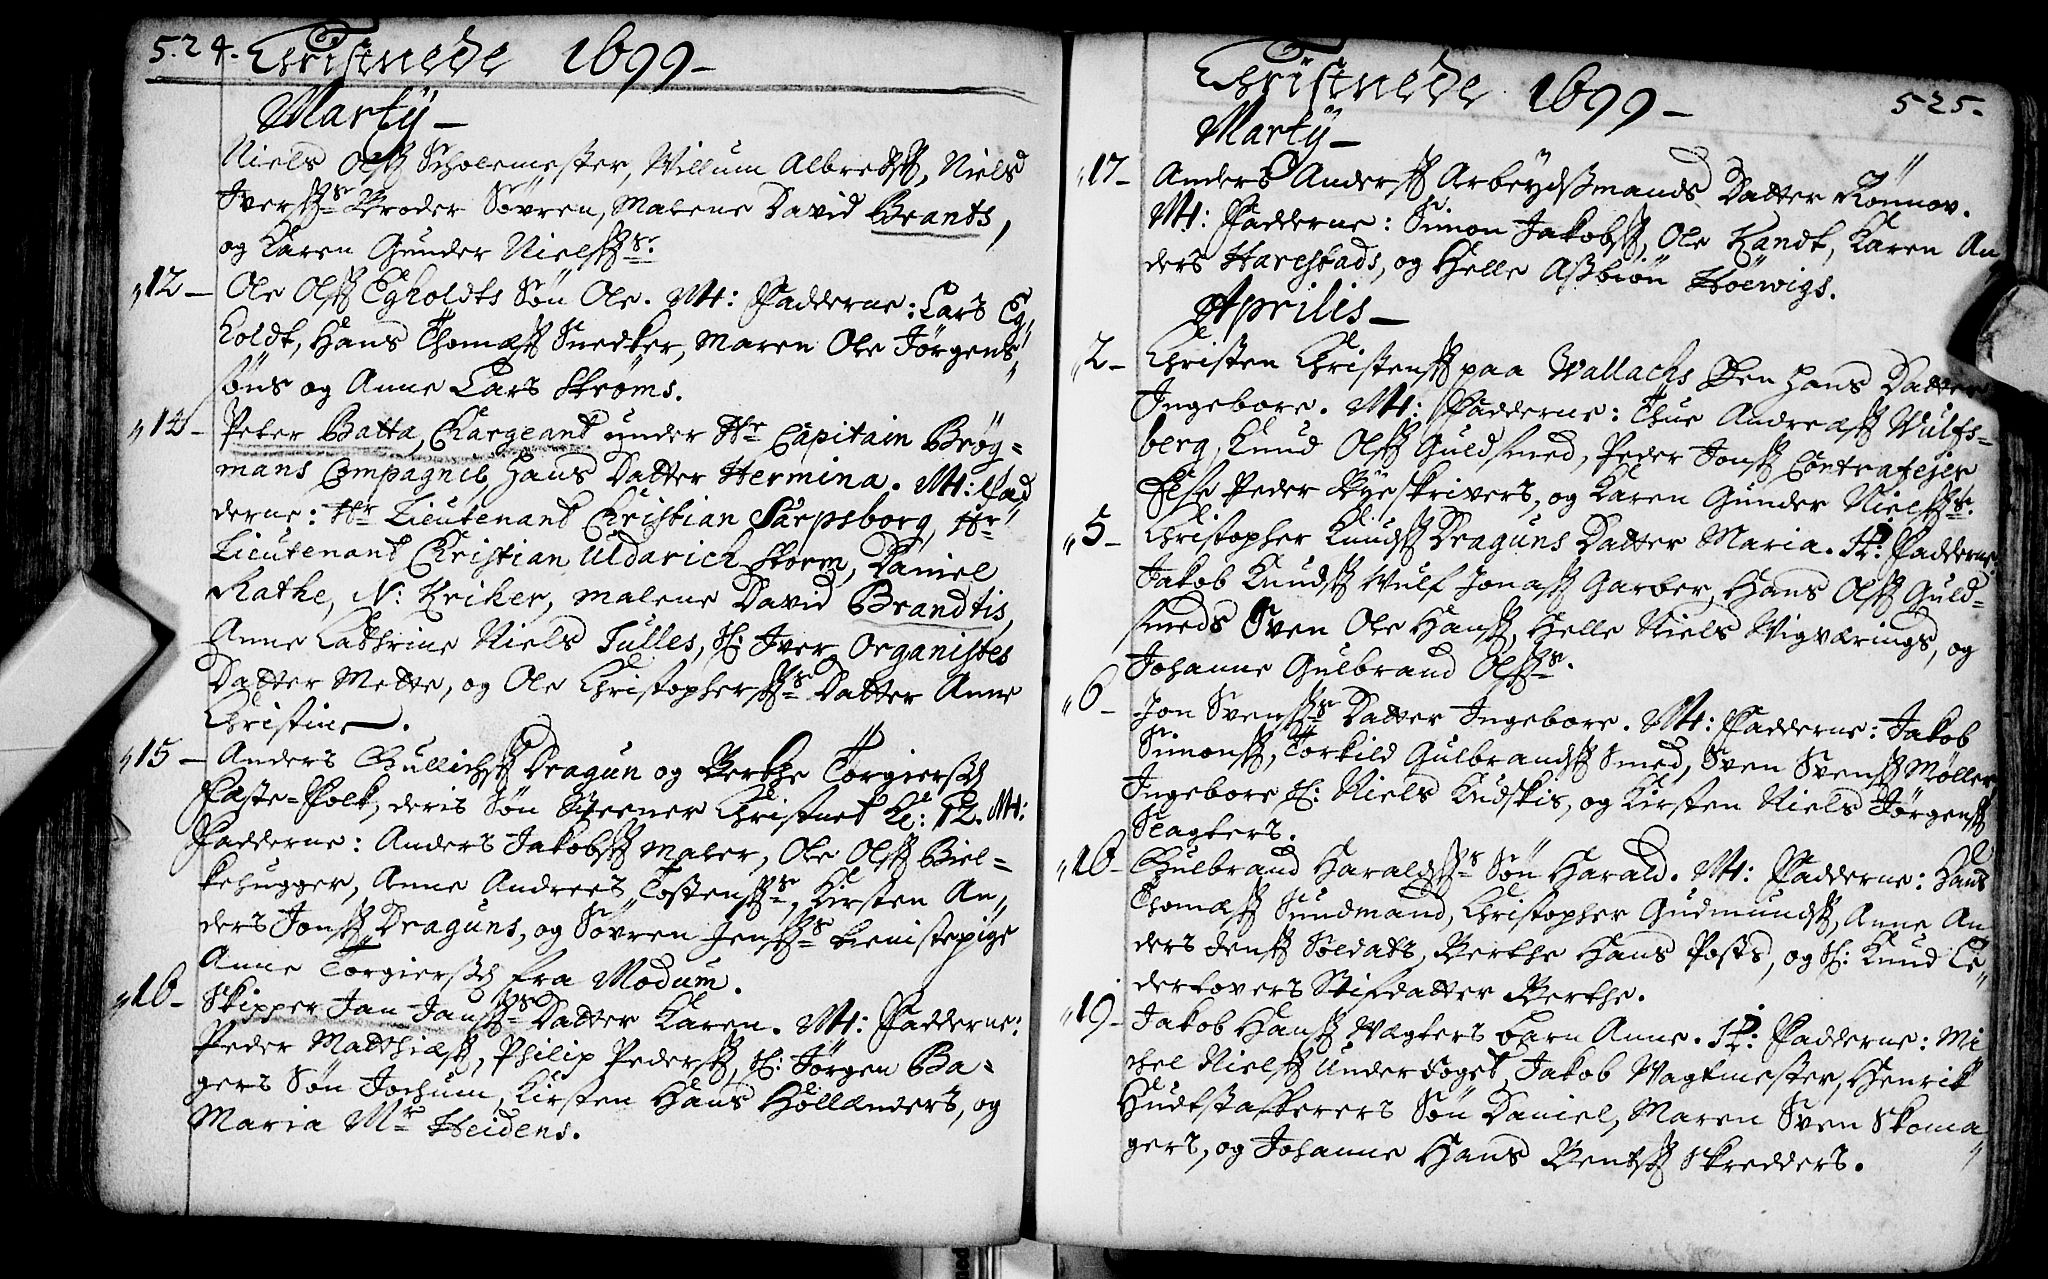 524. Christnede 1699 –
Marty –
Niels Olss Scholemester, Willum Albretss, Niels
Iverss:s Broder Søvren, Malene David Brants,
og Karen Gunder Nielss:s.
12 – Ole Olss Egholdts Søn Ole. Mt: Fadderne: Lars Eg-
holdt, Hans Thomæss Snedker, Maren Ole Jørgens-
søns og Anne Lars Strøms.
14 – Peter Batta, Chargeant under Hr Capitain Brøg-
mans Compagnie, hans Datter Hermina. Mt: Fad-
derne: Hr Lieutenant Christian Sarpsborg, Hr
Lieutenant Christian Uldarich Storm, Daniel
Rathe, N: Kriker, Malene David Brandtis,
Anne Cathrine Niels Tulles, S: Iver Organistes
Datter Mette, og Ole Christopherss:s Datter Anne
Christine.
15 – Anders Gullichss Dragun og Berthe Torgiersd
Fæste-Folk, deris Søn Steener Christnet Kl: 12. Mt:
Fadderne: Anders Jakobss Maler, Ole Olss Biel-
kehugger, Anne Andrees Tostenss:s, Kirsten An-
ders Jonss Draguns, og Søvren Jenss:s tienistepige
Anne Torgiersd fra Modum.
16 – Skipper Jan Janss:s Datter Karen. Mt: Fadderne:
Peder Matthiæss, Philip Pederss, S: Jørgen Ba-
gers Søn Jochum, Kirsten Hans Hollænders, og
Maria Mr Heidens.
Christnede 1699 – 525.
Marty –
17 – Anders Anderss Arbeydsmands Datter Rønnov.
Mt: Fadderne: Simon Jakobss, Ole Kandt, Karen An-
ders Harestads, og Helle Asbiøn Høewigs.
Aprilis –
2 – Christen Christenss paa Wallachs hans Datter
Ingebore. Mt: Fadderne: Thue Andreæss Wulfs-
berg, Knud Olss Guldsmed, Peder Jonss Contrafejer
Else Peder Byeskrivers, og Karen Gunder Nielss:s.
5 – Christopher Knudss Draguns Datter Maria. Fadderne
Jakob Knudss Wulf Jonass Garber, Hans Olss Guld-
smeds Sven Ole Hanss, Helle Niels Wigværings, og
Johanne Gulbrand Olss:s.
6 – Jon Svenss:s Datter Ingebore. Mt: Fadderne: Jakob
Simonss, Torkild Gulbrandss Smed, Sven Svenss Møller,
Ingebore S: Niels Kudskis, og Kirsten Niels Jørgenss
Slagters.
16 – Gulbrand Haraldss:s Søn Harald. Mt: Fadderne: Hans
Thomæss Sundmand, Christopher Gudmundss, Anne An-
ders Jenss Soldats, Berthe Hans Posts, og S: Knud Le-
dertovers Stifdatter Berthe.
19 – Jakob Hanss Vægters barn Anne. Fadderne: Mi-
chel Nielss Underfoget, Jakob Wagtmester, Henrik
Hudtstafferers Søn Daniel, Maren Sven Skoma-
gers, og Johanne Hans Bentss Skredders.